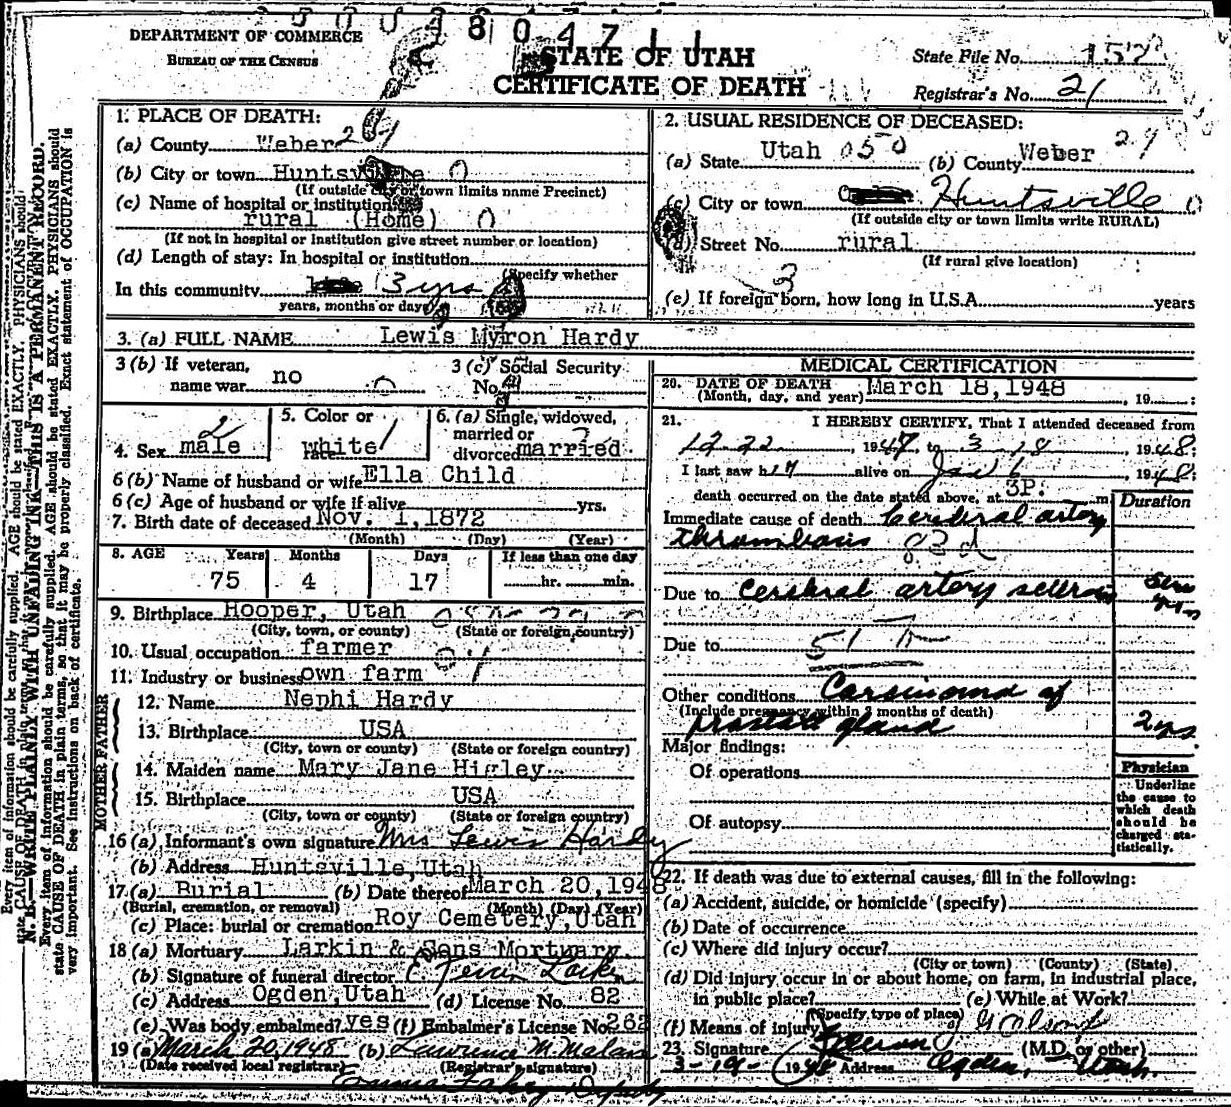 DEPARTMENT OF COMMERCE
BUREAU OF THE CENSUS
STATE OF UTAH
CERTIFICATE OF DEATH
State File No. 157
Registrar's No. 21
1. PLACE OF DEATH:
(a) County Weber 29
(b) City or town Huntsville 0
(If outside city or town limits name Precinct)
(c) Name of hospital or institution
rural (Home) 0
(If not in hospital or institution give street number or location)
(d) Length of stay: In hospital or institution
(Specify whether
In this community 3 yrs
years, months or days)
2. USUAL RESIDENCE OF DECEASED:
(a) State Utah 050 (b) County Weber 29
(c) City or town Huntsville 0
(If outside city or town limits write RURAL)
(d) Street No. rural
(If rural give location)
3
(e) If foreign born, how long in U.S.A. years
3. (a) FULL NAME Lewis Myron Hardy
3 (b) If veteran,
name war no
3 (c) Social Security
No.
4. Sex male
5. Color or
race white
6. (a) Single, widowed,
married or
divorced married
6 (b) Name of husband or wife Ella Child
6 (c) Age of husband or wife if alive yrs.
7. Birth date of deceased Nov. 1, 1872
(Month) (Day) (Year)
8. AGE Years Months Days If less than one day
75 4 17 hr. min.
9. Birthplace Hooper, Utah
(City, town, or county) (State or foreign country)
10. Usual occupation farmer
11. Industry or business own farm
FATHER
12. Name Nephi Hardy
13. Birthplace USA
(City, town or county) (State or foreign country)
MOTHER
14. Maiden name Mary Jane Higley
15. Birthplace USA
(City, town or county) (State or foreign country)
16 (a) Informant's own signature Mrs Lewis Hardy
(b) Address Huntsville, Utah
17. (a) Burial (b) Date thereof March 20, 1948
(Burial, cremation, or removal) (Month) (Day) (Year)
(c) Place: burial or cremation Roy Cemetery, Utah
18 (a) Mortuary Larkin & Sons Mortuary
(b) Signature of funeral director Larkin
(c) Address Ogden, Utah (d) License No. 82
(e) Was body embalmed? yes (f) Embalmer's License No. 262
19 (a) March 20, 1948 (b) Lawrence M. Malan
(Date received local registrar) (Registrar's signature)
MEDICAL CERTIFICATION
20. DATE OF DEATH March 18, 1948
(Month, day, and year) , 19 :
21. I HEREBY CERTIFY, That I attended deceased from
12-22, 1947 to 3-18, 1948;
I last saw him alive on Jan 6, 1948;
death occurred on the date stated above, at 3P. m
Duration
Immediate cause of death Cerebral artery
thrombosis 83d
Due to cerebral artery sclerosis
Due to
Other conditions Carcinoma of
(Include pregnancy within 3 months of death)
prostate gland 2 yrs.
Major findings:
Of operations
Of autopsy
Physician
Underline
the cause to
which death
should be
charged sta-
tistically.
22. If death was due to external causes, fill in the following:
(a) Accident, suicide, or homicide (specify)
(b) Date of occurrence
(c) Where did injury occur?
(City or town) (County) (State)
(d) Did injury occur in or about home, on farm, in industrial place,
in public place? (e) While at Work?
(Specify type of place)
(f) Means of injury
23. Signature (M.D. or other)
3-19-1948 Address Ogden, Utah.
Every item of information should be carefully supplied. AGE should be stated EXACTLY. PHYSICIANS should
N. B.—WRITE PLAINLY WITH UNFADING INK—THIS IS A PERMANENT RECORD.
Every item of information should be carefully supplied. AGE should be stated EXACTLY. PHYSICIANS should
state CAUSE OF DEATH in plain terms, so that it may be properly classified. Exact statement of OCCUPATION is
very important. See instructions on back of certificate.